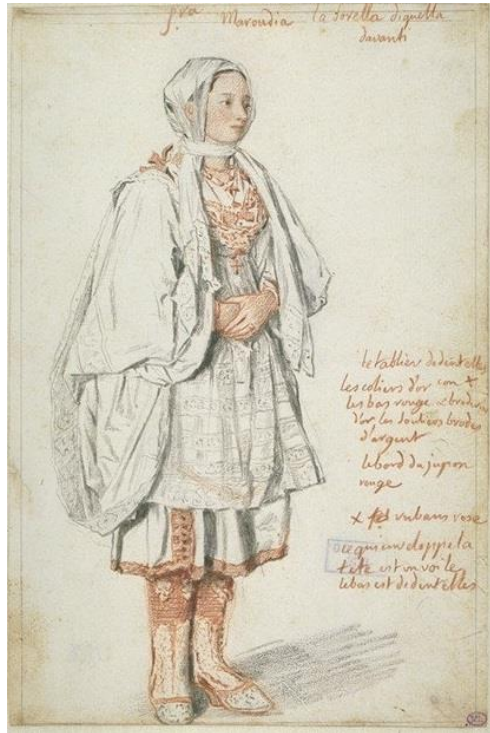 pra Maroudia la sorella diquella
davanti
le tablier dedentelles
les coliers d'or con +
les bas rouge & broderie
d'or, les souliers brodes
d'argent
le bord du jupon
rouge
x rubans rose
ce qui enveloppe la
tete est un voile
le bas est dedentelles